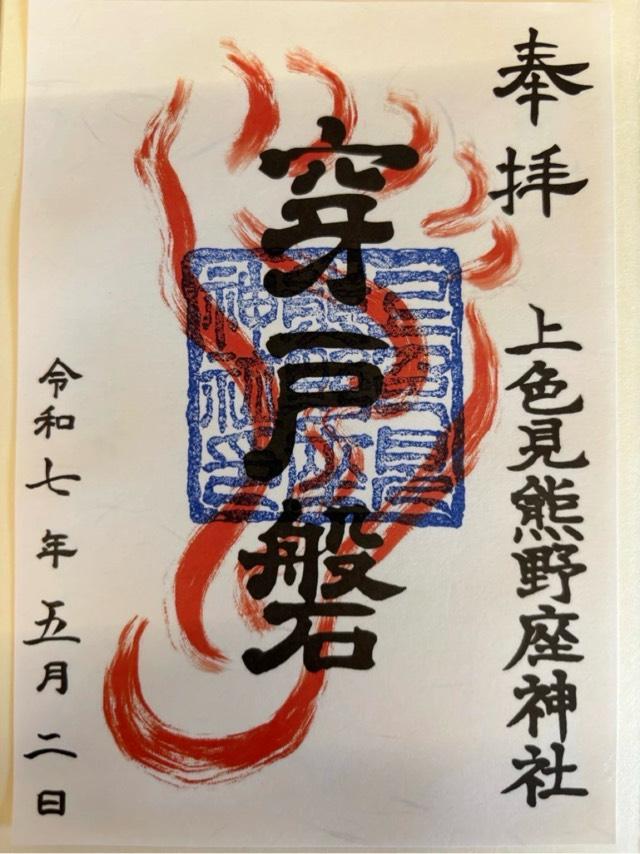 奉拝
上色見熊野座神社
穿戸磐
令和七年五月二日